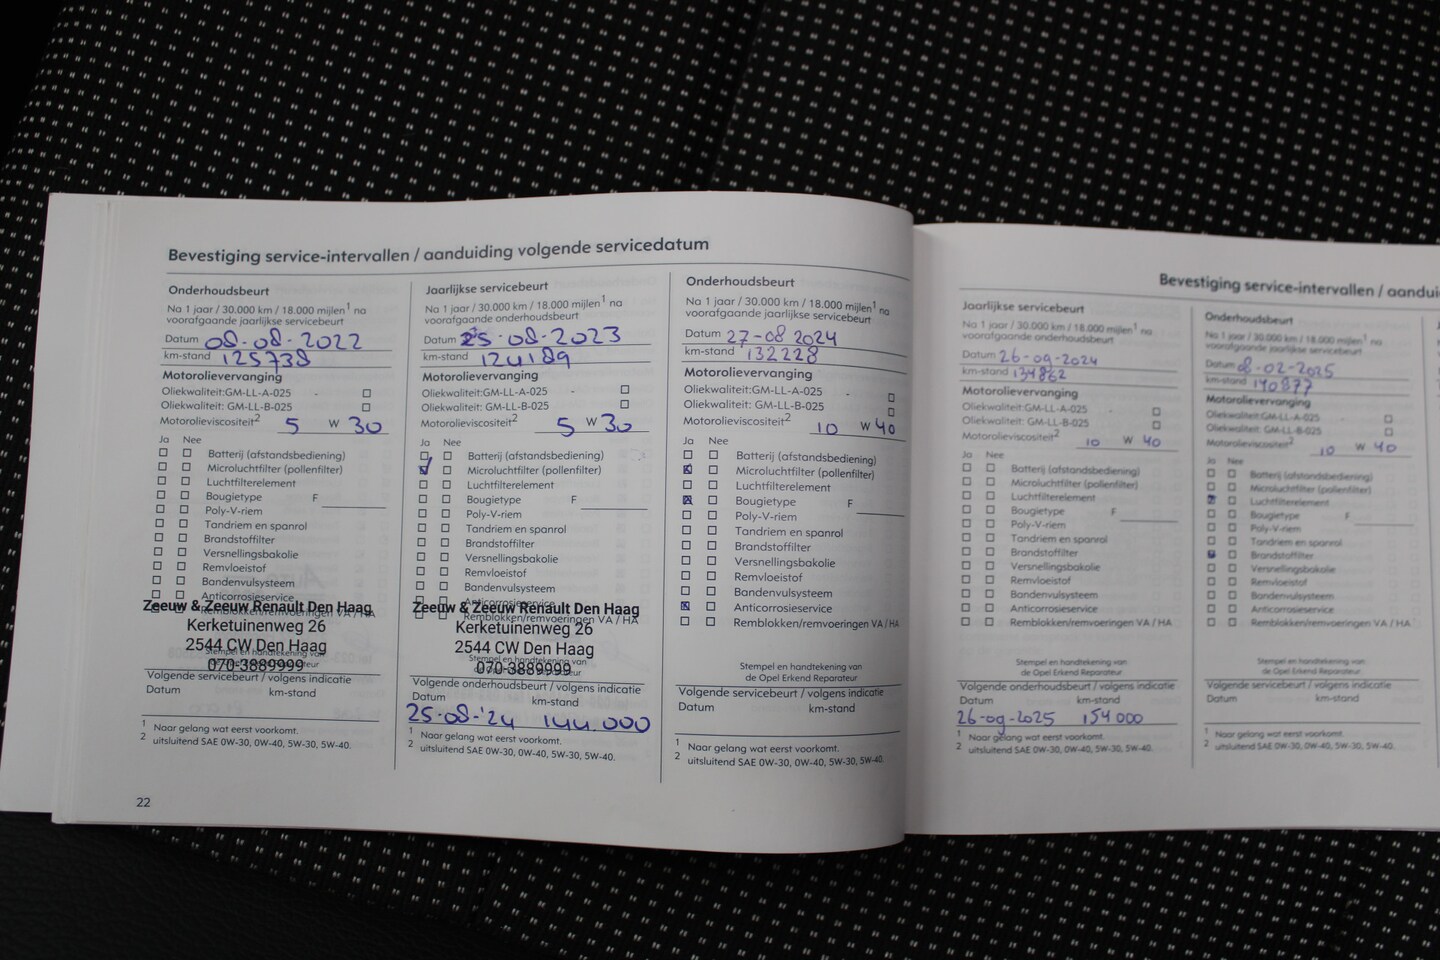 Bevestiging service-intervallen / aanduiding volgende servicedatum
Onderhoudsbeurt
Na 1 jaar / 30.000 km / 18.000 mijlen¹ na
voorafgaande jaarlijkse servicebeurt
Datum 08-08-2022
km-stand 125738
Motorolievervanging
Oliekwaliteit:GM-LL-A-025
Oliekwaliteit: GM-LL-B-025
Motorolieviscositeit² 5 W 30
Ja Nee
Batterij (afstandsbediening)
Microluchtfilter (pollenfilter)
Luchtfilterelement
Bougietype F
Poly-V-riem
Tandriem en spanrol
Brandstoffilter
Versnellingsbakolie
Remvloeistof
Bandenvulsysteem
Anticorrosieservice
Remblokken/remvoeringen VA / HA
Zeeuw & Zeeuw Renault Den Haag
Kerketuinenweg 26
2544 CW Den Haag
070-3889999
Stempel en handtekening van
Volgende servicebeurt / volgens indicatie
Datum km-stand
1 Naar gelang wat eerst voorkomt.
2 uitsluitend SAE 0W-30, 0W-40, 5W-30, 5W-40.
22
Jaarlijkse servicebeurt
Na 1 jaar / 30.000 km / 18.000 mijlen¹ na
voorafgaande onderhoudsbeurt
Datum 25-08-2023
km-stand 124189
Motorolievervanging
Oliekwaliteit:GM-LL-A-025
Oliekwaliteit: GM-LL-B-025
Motorolieviscositeit² 5 W 30
Ja Nee
Batterij (afstandsbediening)
Microluchtfilter (pollenfilter)
Luchtfilterelement
Bougietype F
Poly-V-riem
Tandriem en spanrol
Brandstoffilter
Versnellingsbakolie
Remvloeistof
Bandenvulsysteem
Anticorrosieservice
Remblokken/remvoeringen VA / HA
Zeeuw & Zeeuw Renault Den Haag
Kerketuinenweg 26
2544 CW Den Haag
070-3889999
Stempel en handtekening van
Volgende onderhoudsbeurt / volgens indicatie
Datum km-stand
25-08-'24 144.000
1 Naar gelang wat eerst voorkomt.
2 uitsluitend SAE 0W-30, 0W-40, 5W-30, 5W-40.
Onderhoudsbeurt
Na 1 jaar / 30.000 km / 18.000 mijlen¹ na
voorafgaande jaarlijkse servicebeurt
Datum 27-08 2024
km-stand 132228
Motorolievervanging
Oliekwaliteit:GM-LL-A-025
Oliekwaliteit: GM-LL-B-025
Motorolieviscositeit² 10 W 40
Ja Nee
Batterij (afstandsbediening)
Microluchtfilter (pollenfilter)
Luchtfilterelement
Bougietype F
Poly-V-riem
Tandriem en spanrol
Brandstoffilter
Versnellingsbakolie
Remvloeistof
Bandenvulsysteem
Anticorrosieservice
Remblokken/remvoeringen VA / HA
Stempel en handtekening van
de Opel Erkend Reparateur
Volgende servicebeurt / volgens indicatie
Datum km-stand
1 Naar gelang wat eerst voorkomt.
2 uitsluitend SAE 0W-30, 0W-40, 5W-30, 5W-40.
Bevestiging service-intervallen / aandui
Jaarlijkse servicebeurt
Na 1 jaar / 30.000 km / 18.000 mijlen¹ na
voorafgaande onderhoudsbeurt
Datum 26-09-2024
km-stand 134862
Motorolievervanging
Oliekwaliteit:GM-LL-A-025
Oliekwaliteit: GM-LL-B-025
Motorolieviscositeit² 10 W 40
Ja Nee
Batterij (afstandsbediening)
Microluchtfilter (pollenfilter)
Luchtfilterelement
Bougietype F
Poly-V-riem
Tandriem en spanrol
Brandstoffilter
Versnellingsbakolie
Remvloeistof
Bandenvulsysteem
Anticorrosieservice
Remblokken/remvoeringen VA / HA
Stempel en handtekening van
de Opel Erkend Reparateur
Volgende onderhoudsbeurt / volgens indicatie
Datum km-stand
26-09-2025 154000
1 Naar gelang wat eerst voorkomt.
2 uitsluitend SAE 0W-30, 0W-40, 5W-30, 5W-40.
Onderhoudsbeurt
Na 1 jaar / 30.000 km / 18.000 mijlen¹ na
voorafgaande jaarlijkse servicebeurt
Datum 08-02-2025
km-stand 140877
Motorolievervanging
Oliekwaliteit:GM-LL-A-025
Oliekwaliteit: GM-LL-B-025
Motorolieviscositeit² 10 W 40
Ja Nee
Batterij (afstandsbediening)
Microluchtfilter (pollenfilter)
Luchtfilterelement
Bougietype F
Poly-V-riem
Tandriem en spanrol
Brandstoffilter
Versnellingsbakolie
Remvloeistof
Bandenvulsysteem
Anticorrosieservice
Remblokken/remvoeringen VA / HA
Stempel en handtekening van
de Opel Erkend Reparateur
Volgende servicebeurt / volgens indicatie
Datum km-stand
1 Naar gelang wat eerst voorkomt.
2 uitsluitend SAE 0W-30, 0W-40, 5W-30, 5W-40.